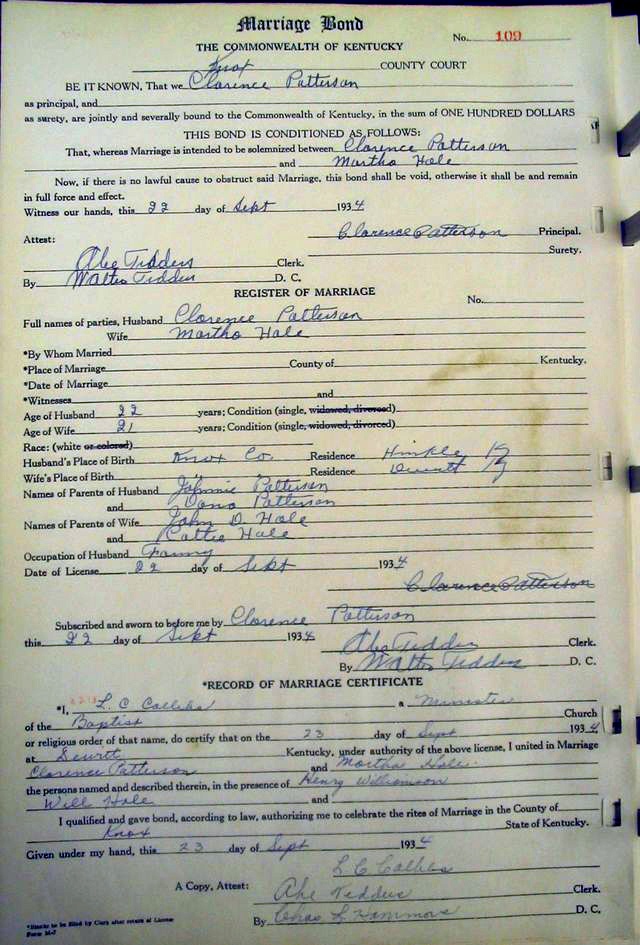 Marriage Bond
No. 109
THE COMMONWEALTH OF KENTUCKY
Knox COUNTY COURT
BE IT KNOWN, That we Clarence Patterson
as principal, and
as surety, are jointly and severally bound to the Commonwealth of Kentucky, in the sum of ONE HUNDRED DOLLARS
THIS BOND IS CONDITIONED AS FOLLOWS:
That, whereas Marriage is intended to be solemnized between Clarence Patterson
and Martha Hale
Now, if there is no lawful cause to obstruct said Marriage, this bond shall be void, otherwise it shall be and remain
in full force and effect.
Witness our hands, this 22 day of Sept 1934
Clarence Patterson Principal.
Attest: Surety.
Abe Tedders Clerk.
By Walter Tedders D. C.
REGISTER OF MARRIAGE
No.
Full names of parties, Husband Clarence Patterson
Wife Martha Hale
*By Whom Married
*Place of Marriage County of Kentucky.
*Date of Marriage
*Witnesses and
Age of Husband 22 years; Condition (single, widowed, divorced)
Age of Wife 21 years; Condition (single, widowed, divorced)
Race: (white or colored)
Husband's Place of Birth Knox Co. Residence Hinkle Ky
Wife's Place of Birth " " Residence Dewitt Ky
Names of Parents of Husband Johnnie Patterson
and Patterson
Names of Parents of Wife John D. Hale
and Hale
Occupation of Husband
Date of License 22 day of Sept 1934
Clarence Patterson
Subscribed and sworn to before me by Clarence Patterson
this 22 day of Sept 1934
Abe Tedders Clerk.
By Walter Tedders D. C.
*RECORD OF MARRIAGE CERTIFICATE
*I, L. C. a Minister
of the Baptist Church
or religious order of that name, do certify that on the 23 day of Sept 1934
at Dewitt Kentucky, under authority of the above license, I united in Marriage
Clarence Patterson and Martha Hale.
the persons named and described therein, in the presence of Henry Williamson
Will Hale and
I qualified and gave bond, according to law, authorizing me to celebrate the rites of Marriage in the County of
Knox State of Kentucky.
Given under my hand, this 23 day of Sept 1934
L C
A Copy, Attest: Abe Tedders Clerk.
By Chas L Hammons D. C.
*Blanks to be filled by Clerk after return of License
Form M-7